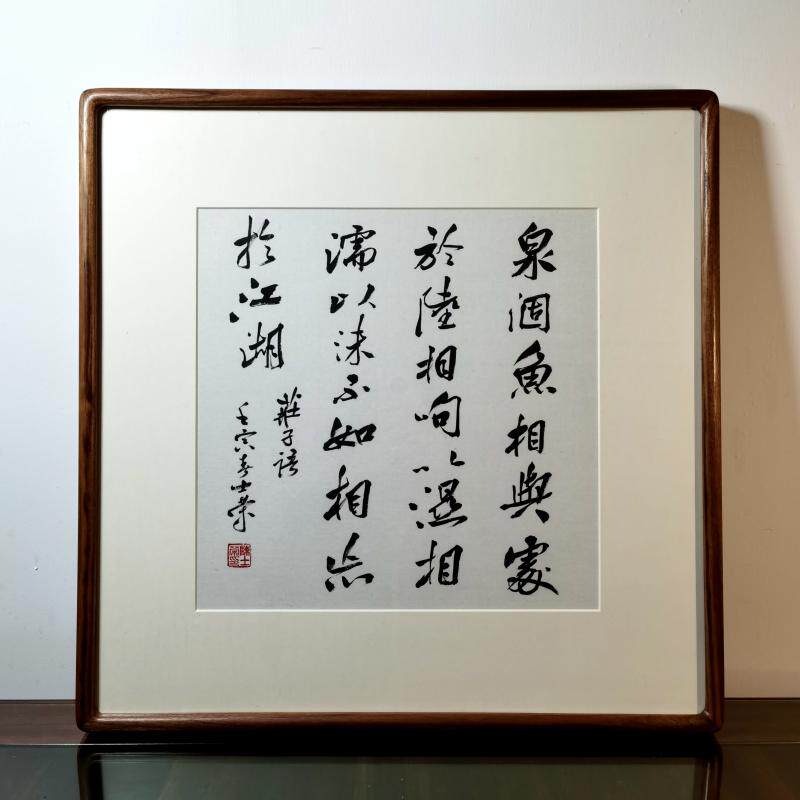 泉涸魚相與處
於陸相呴以濕相
濡以沫不如相忘
於江湖
莊子語
壬寅春士榮